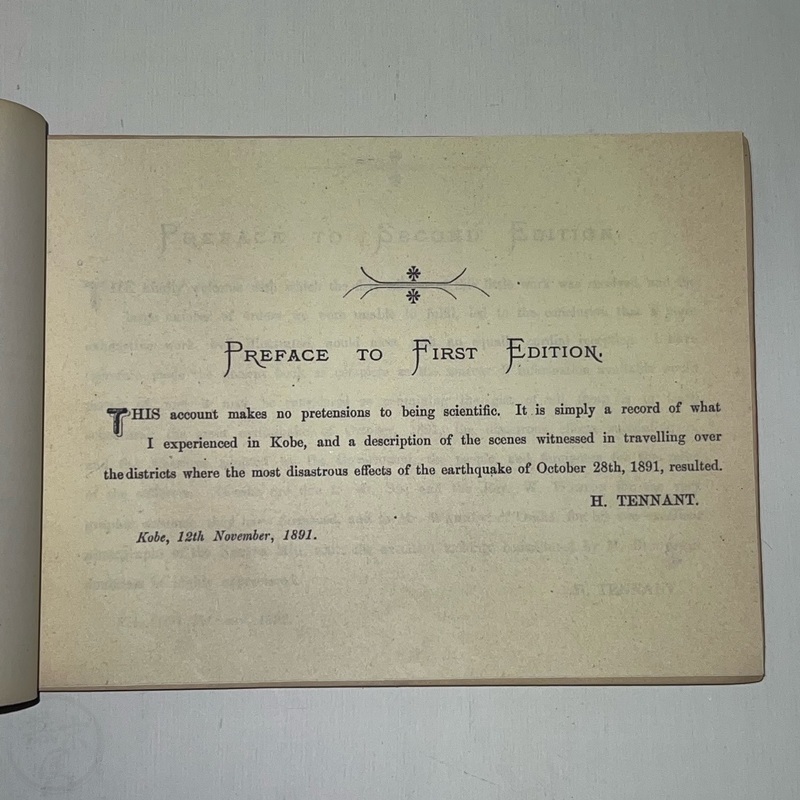 PREFACE TO FIRST EDITION.
THIS account makes no pretensions to being scientific. It is simply a record of what
I experienced in Kobe, and a description of the scenes witnessed in travelling over
the districts where the most disastrous effects of the earthquake of October 28th, 1891, resulted.
H. TENNANT.
Kobe, 12th November, 1891.